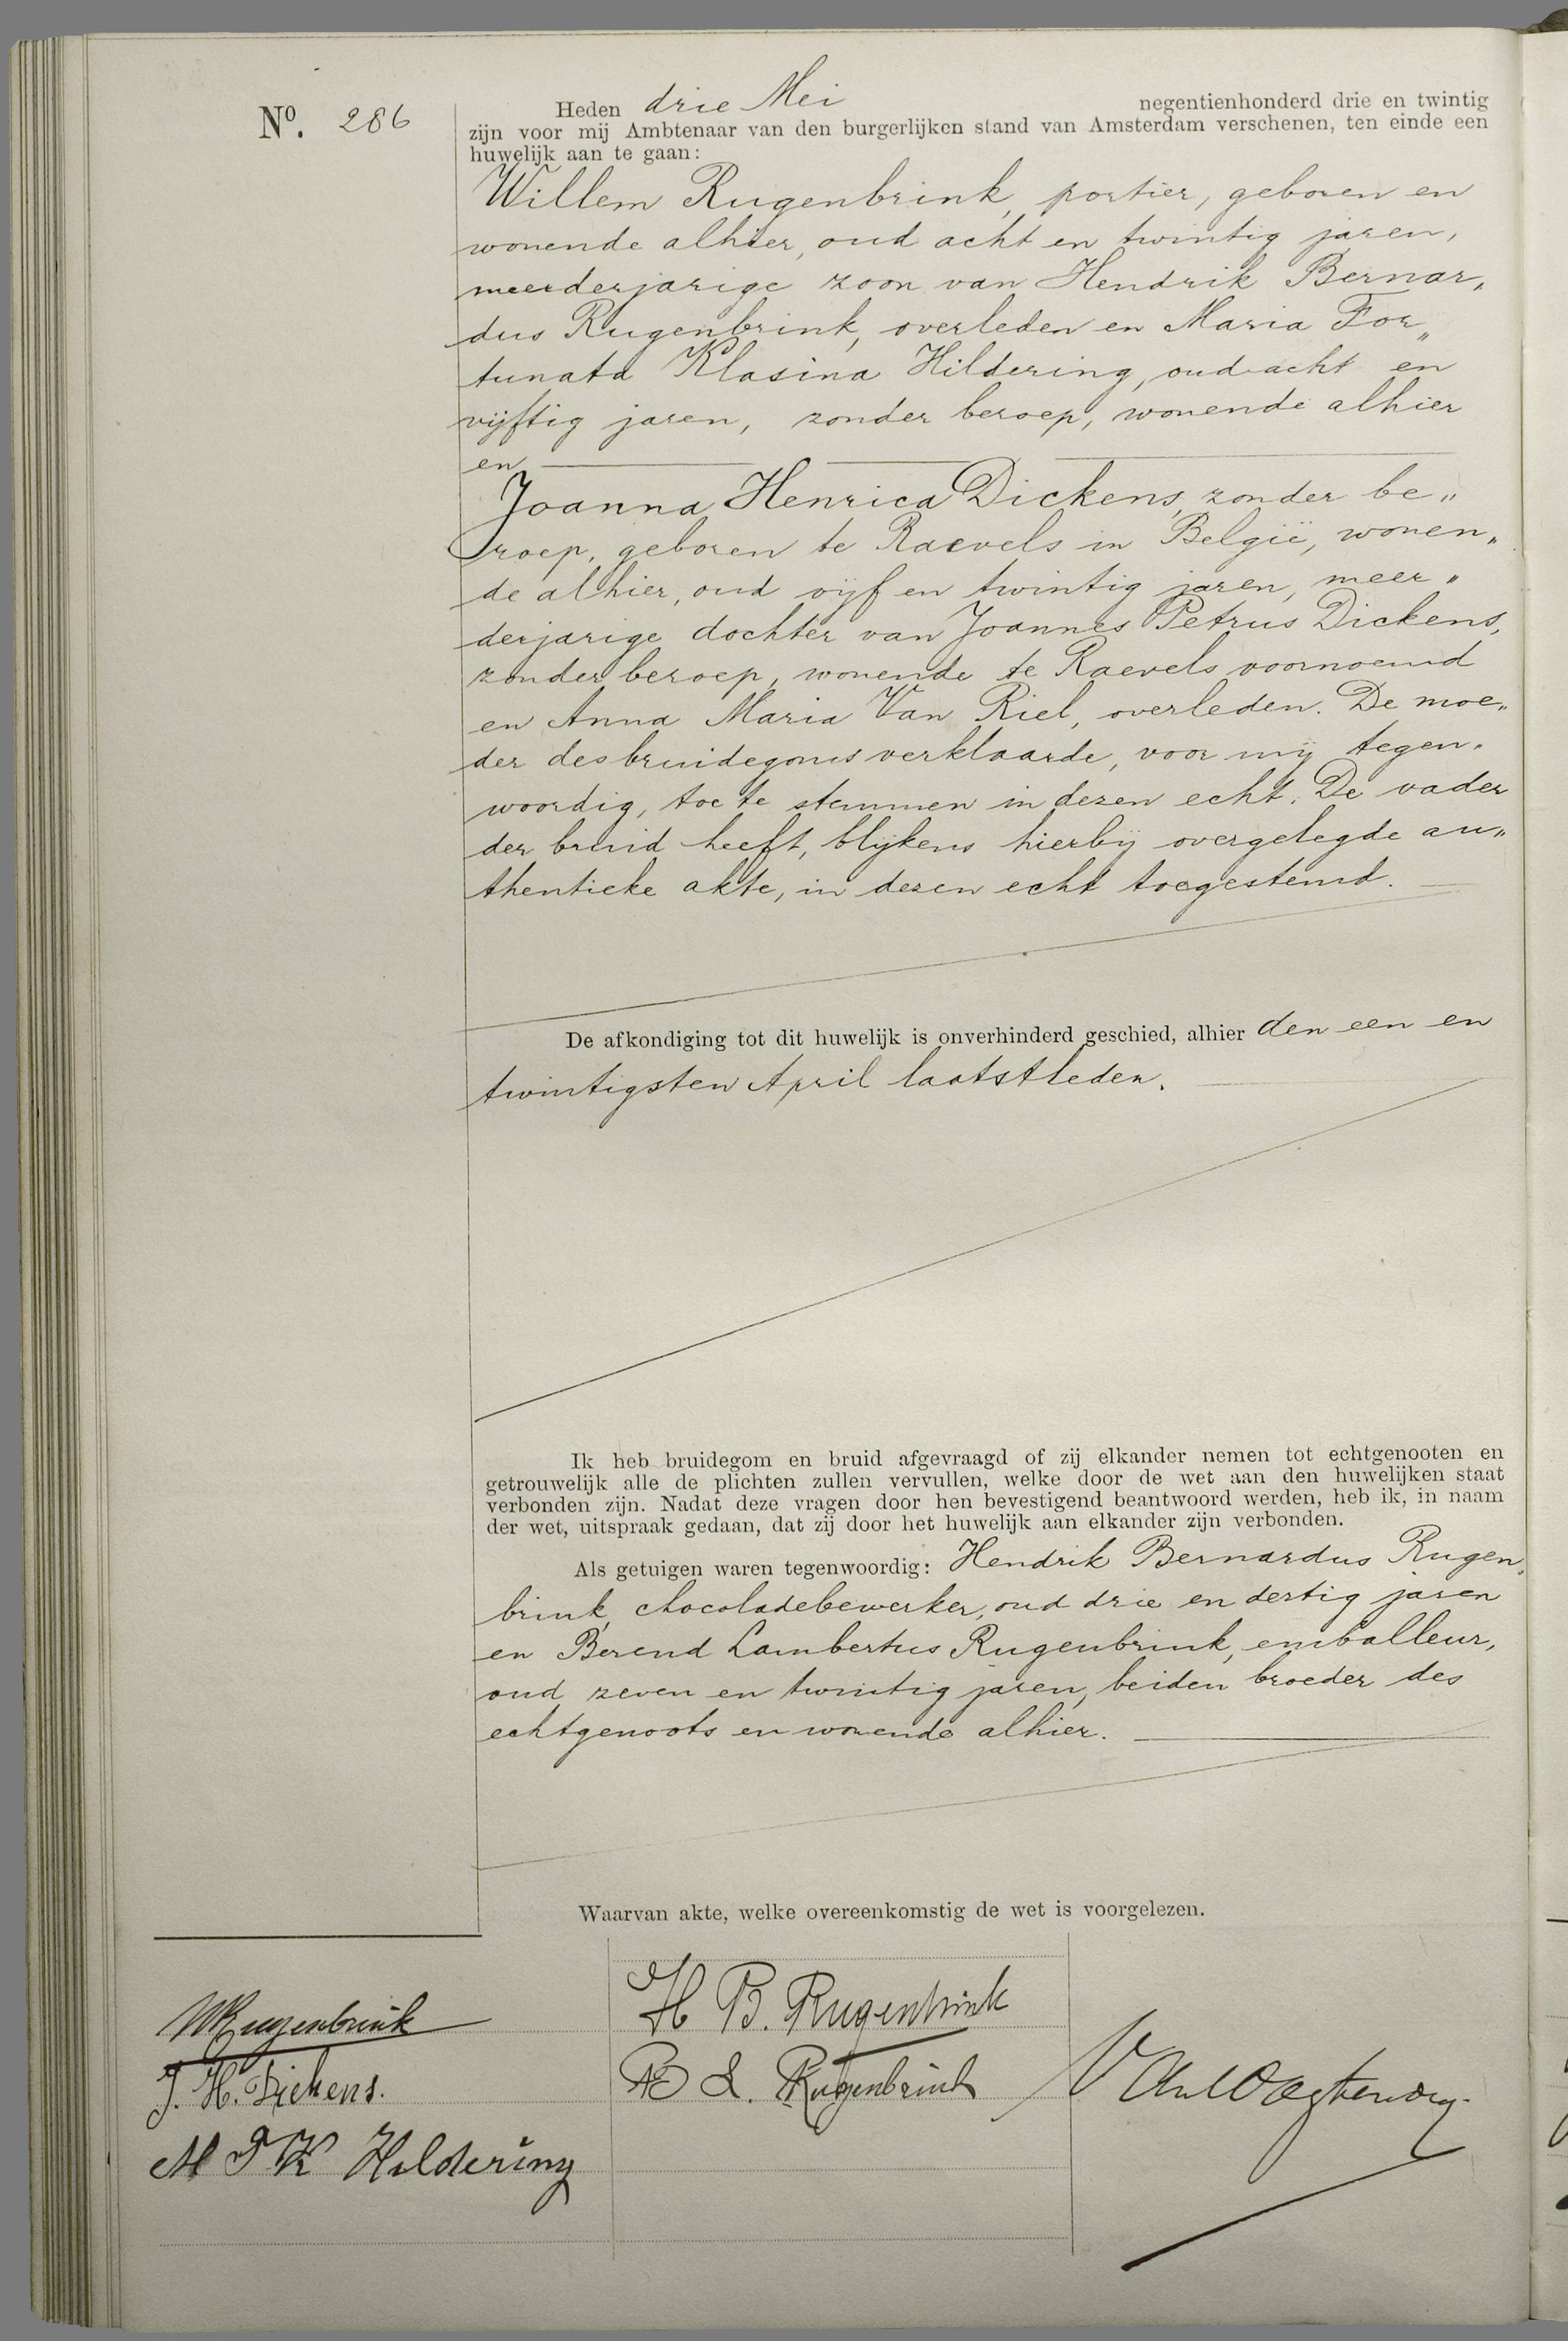 Nº. 286
Heden drie Mei negentienhonderd drie en twintig
zijn voor mij Ambtenaar van den burgerlijken stand van Amsterdam verschenen, ten einde een
huwelijk aan te gaan:
Willem Rugenbrink, portier, geboren en
wonende alhier, oud acht en twintig jaren,
meerderjarige zoon van Hendrik Bernar„
dus Rugenbrink, overleden en Maria For„
tunata Klasina Hildering, oud acht en
vijftig jaren, zonder beroep, wonende alhier
en
Joanna Henrica Dickens, zonder be„
roep, geboren te Raevels in België, wonen„
de alhier, oud vijf en twintig jaren, meer„
derjarige dochter van Joannes Petrus Dickens,
zonder beroep, wonende te Raevels voornoemd
en Anna Maria Van Riel, overleden. De moe„
der des bruidegoms verklaarde, voor mij tegen„
woordig, toe te stemmen in dezen echt. De vader
der bruid heeft, blijkens hierbij overgelegde au„
thentieke akte, in dezen echt toegestemd.
De afkondiging tot dit huwelijk is onverhinderd geschied, alhier den een en
twintigsten April laatstleden.
Ik heb bruidegom en bruid afgevraagd of zij elkander nemen tot echtgenooten en
getrouwelijk alle de plichten zullen vervullen, welke door de wet aan den huwelijken staat
verbonden zijn. Nadat deze vragen door hen bevestigend beantwoord werden, heb ik, in naam
der wet, uitspraak gedaan, dat zij door het huwelijk aan elkander zijn verbonden.
Als getuigen waren tegenwoordig: Hendrik Bernardus Rugen„
brink, chocoladebewerker, oud drie en dertig jaren
en Berend Lambertus Rugenbrink, emballeur,
oud zeven en twintig jaren, beiden broeder des
echtgenoots en wonende alhier.
Waarvan akte, welke overeenkomstig de wet is voorgelezen.
WRugenbrink
J. H. Dickens.
M F K Hildering
H B. Rugenbrink
B L. Rugenbrink